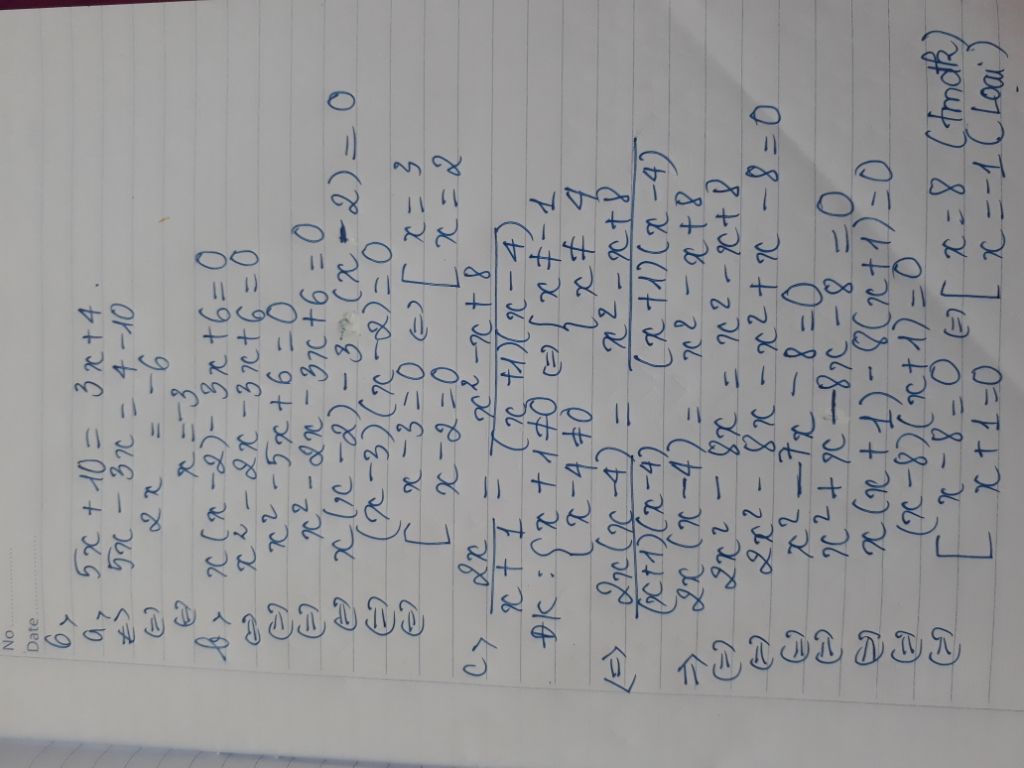 No ..........
Date ..........
6>
a> 5x + 10 = 3x + 4.
<=> 5x - 3x = 4 - 10
<=> 2x = -6
<=> x = -3
b> x(x - 2) - 3x + 6 = 0
<=> x² - 2x - 3x + 6 = 0
<=> x² - 5x + 6 = 0
<=> x² - 2x - 3x + 6 = 0
<=> x(x - 2) - 3(x - 2) = 0
<=> (x - 3)(x - 2) = 0
<=> [ x - 3 = 0 <=> [ x = 3
x - 2 = 0 x = 2
c> 2x / (x + 1) = (x² - x + 8) / ((x + 1)(x - 4))
ĐK : { x + 1 ≠ 0 <=> { x ≠ -1
x - 4 ≠ 0 x ≠ 4
<=> 2x(x - 4) / ((x + 1)(x - 4)) = (x² - x + 8) / ((x + 1)(x - 4))
=> 2x(x - 4) = x² - x + 8
<=> 2x² - 8x = x² - x + 8
<=> 2x² - 8x - x² + x - 8 = 0
<=> x² - 7x - 8 = 0
<=> x² + x - 8x - 8 = 0
<=> x(x + 1) - 8(x + 1) = 0
<=> (x - 8)(x + 1) = 0
<=> [ x - 8 = 0 <=> [ x = 8 (tmđk)
x + 1 = 0 x = -1 (Loại)